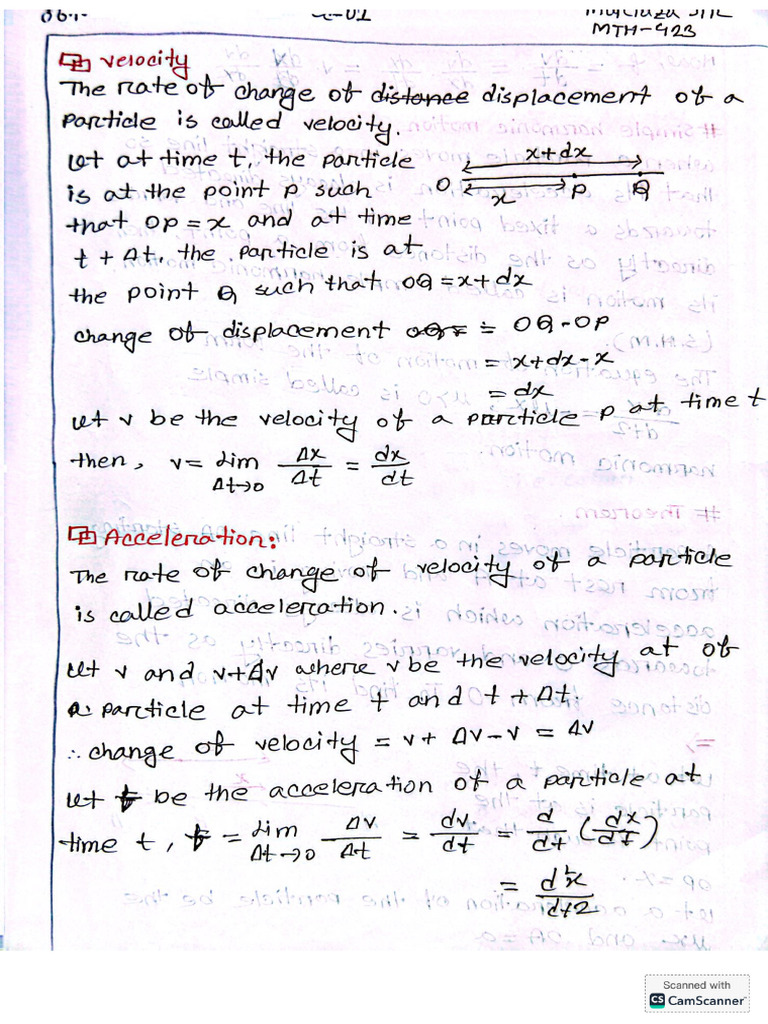 MTH-423
Velocity
The rate of change of distance displacement of a
particle is called velocity.
Let at time t, the particle
x+dx
is at the point P such
O x P Q
that OP = x and at time
t + Δt, the particle is at
the point Q such that OQ = x+dx
change of displacement = OQ - OP
= x+dx-x
= dx
Let v be the velocity of a particle P at time t
then, v = Lim Δt→0 Δx/Δt = dx/dt
Acceleration:
The rate of change of velocity of a particle
is called acceleration.
Let v and v+Δv where v be the velocity at of
a particle at time t and t + Δt.
∴ change of velocity = v + Δv - v = Δv
Let f be the acceleration of a particle at
time t, f = Lim Δt→0 Δv/Δt = dv/dt = d/dt (dx/dt)
= d²x/dt2
Scanned with
CS CamScanner